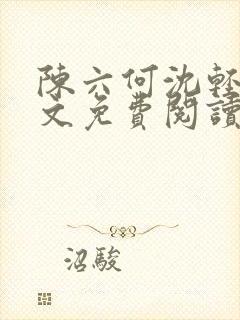 陳六何沈輕
文免費閱讀
沼駿